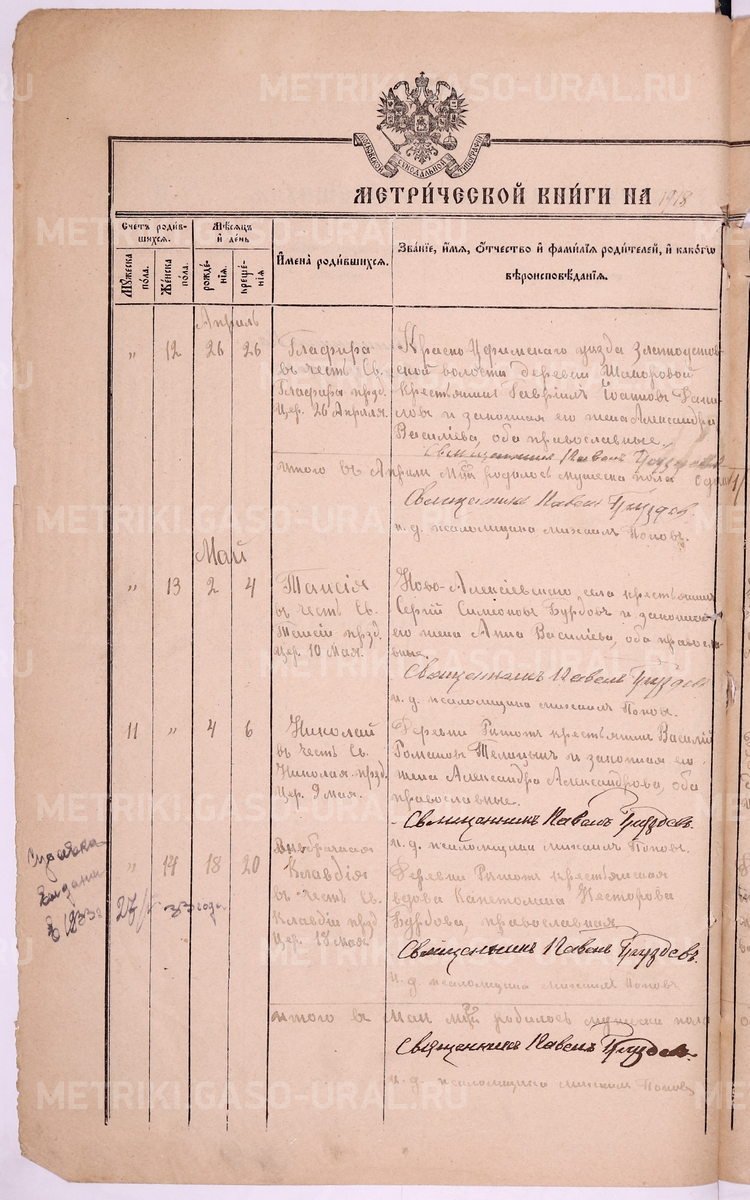 МОСКОВСКОЙ СѴНОДАЛЬНОЙ ТИПОГРАФІИ
МЕТРИ́ЧЕСКОЙ КНИ́ГИ НА 1918
Счетъ роди́вшихся.
Мѣсяцъ и́ день
Мꙋ́жеска по́ла.
Же́нска по́ла.
рожде́нїѧ.
креще́нїѧ
И҆мена̀ роди́вшихся.
Зва́нїе, и҆́мѧ, ѻ҆́тчество и҆ фами́лїѧ роди́телей, и҆ како́гѡ
вѣроисповѣ́данїѧ.
Апрѣль
" 12 26 26
Глафира
въ честь Св.
Глафира прзд.
цер. 26 Апрѣля.
Красно Уфимскаго уѣзда Златоустов-
ской волости деревни Шаморовой
крестьянинъ Гавріилъ Іоанновъ Дани-
ловъ и законная его жена Александра
Василіева, оба православные.
Священникъ Павелъ Груздевъ
итого въ Апрѣли мцѣ родилось мужеска пола одинъ
Священникъ Павелъ Груздевъ
и. д. псаломщика Михаилъ Поповъ.
Май
" 13 2 4
Таисія
въ честь Св.
Таисіи прзд.
цер. 10 Мая.
Ново-Алексіевскаго села крестьянинъ
Сергій Симеоновъ Бурдовъ и законная
его жена Анна Василіева, оба правосла-
вные.
Священникъ Павелъ Груздевъ
и. д. псаломщика Михаилъ Поповъ.
11 " 4 6
Николай
въ честь Св.
Николая прзд.
цер. 9 мая.
Деревни крестьянинъ Василій
Романовъ Телицынъ и законная его
жена Александра Александрова, оба
православные.
Священникъ Павелъ Груздевъ.
и. д. псаломщика Михаилъ Поповъ.
" 14 18 20
Внѣбрачная
Клавдія
въ честь Св.
Клавдіи прзд.
Цер. 18 мая
Деревни крестьянская
вдова Капетолина Несторова
Бурдова, православная
Священникъ Павелъ Груздевъ.
и. д. псаломщика Михаилъ Поповъ
Справка
выдана
в 1933г
27/ 33 года
итого въ Маи мцѣ родилось мужска пола
Священникъ Павелъ Груздевъ.
и. д. псаломщика Михаилъ Поповъ
METRIKI.GASO-URAL.RU